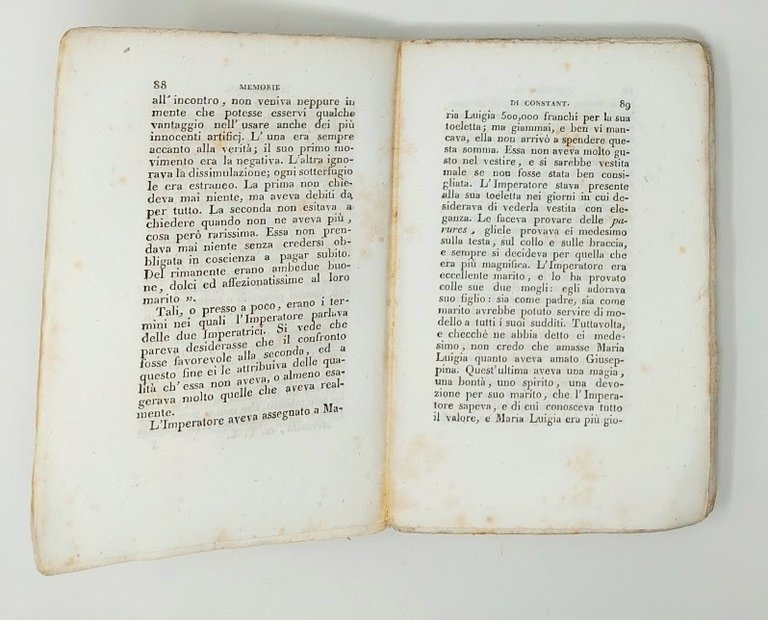 88
MEMORIE
all' incontro, non veniva neppure in
mente che potesse esservi qualche
vantaggio nell' usare anche dei più
innocenti artificj. L' una era sempre
accanto alla verità; il suo primo mo-
vimento era la negativa. L'altra igno-
rava la dissimulazione; ogni sotterfugio
le era estraneo. La prima non chie-
deva mai niente, ma aveva debiti da
per tutto. La seconda non esitava a
chiedere quando non ne aveva più,
cosa però rarissima. Essa non pren-
dava mai niente senza credersi ob-
bligata in coscienza a pagar subito.
Del rimanente erano ambedue buo-
ne, dolci ed affezionatissime al loro
marito ».
Tali, o presso a poco, erano i ter-
mini nei quali l'Imperatore parlava
delle due Imperatrici. Si vede che
pareva desiderasse che il confronto
fosse favorevole alla seconda, ed a
questo fine ei le attribuiva delle qua-
lità ch' essa non aveva, o almeno esa-
gerava molto quelle che aveva real-
mente.
L'Imperatore aveva assegnato a Ma-
DI CONSTANT.
89
ria Luigia 500,000 franchi per la sua
toeletta; ma giammai, e ben vi man-
cava, ella non arrivò a spendere que-
sta somma. Essa non aveva molto gu-
sto nel vestire, e si sarebbe vestita
male se non fosse stata ben consi-
gliata. L'Imperatore stava presente
alla sua toeletta nei giorni in cui de-
siderava di vederla vestita con ele-
ganza. Le faceva provare delle pa-
rures, gliele provava ei medesimo
sulla testa, sul collo e sulle braccia,
e sempre si decideva per quella che
era più magnifica. L'Imperatore era
eccellente marito, e lo ha provato
colle sue due mogli: egli adorava
suo figlio: sia come padre, sia come
marito avrebbe potuto servire di mo-
dello a tutti i suoi sudditi. Tuttavolta,
e checchè ne abbia detto ei mede-
simo, non credo che amasse Maria
Luigia quanto aveva amato Giusep-
pina. Quest'ultima aveva una magia,
una bontà, uno spirito, una devo-
zione per suo marito, che l'Impera-
tore sapeva, e di cui conosceva tutto
il valore, e Maria Luigia era più gio-